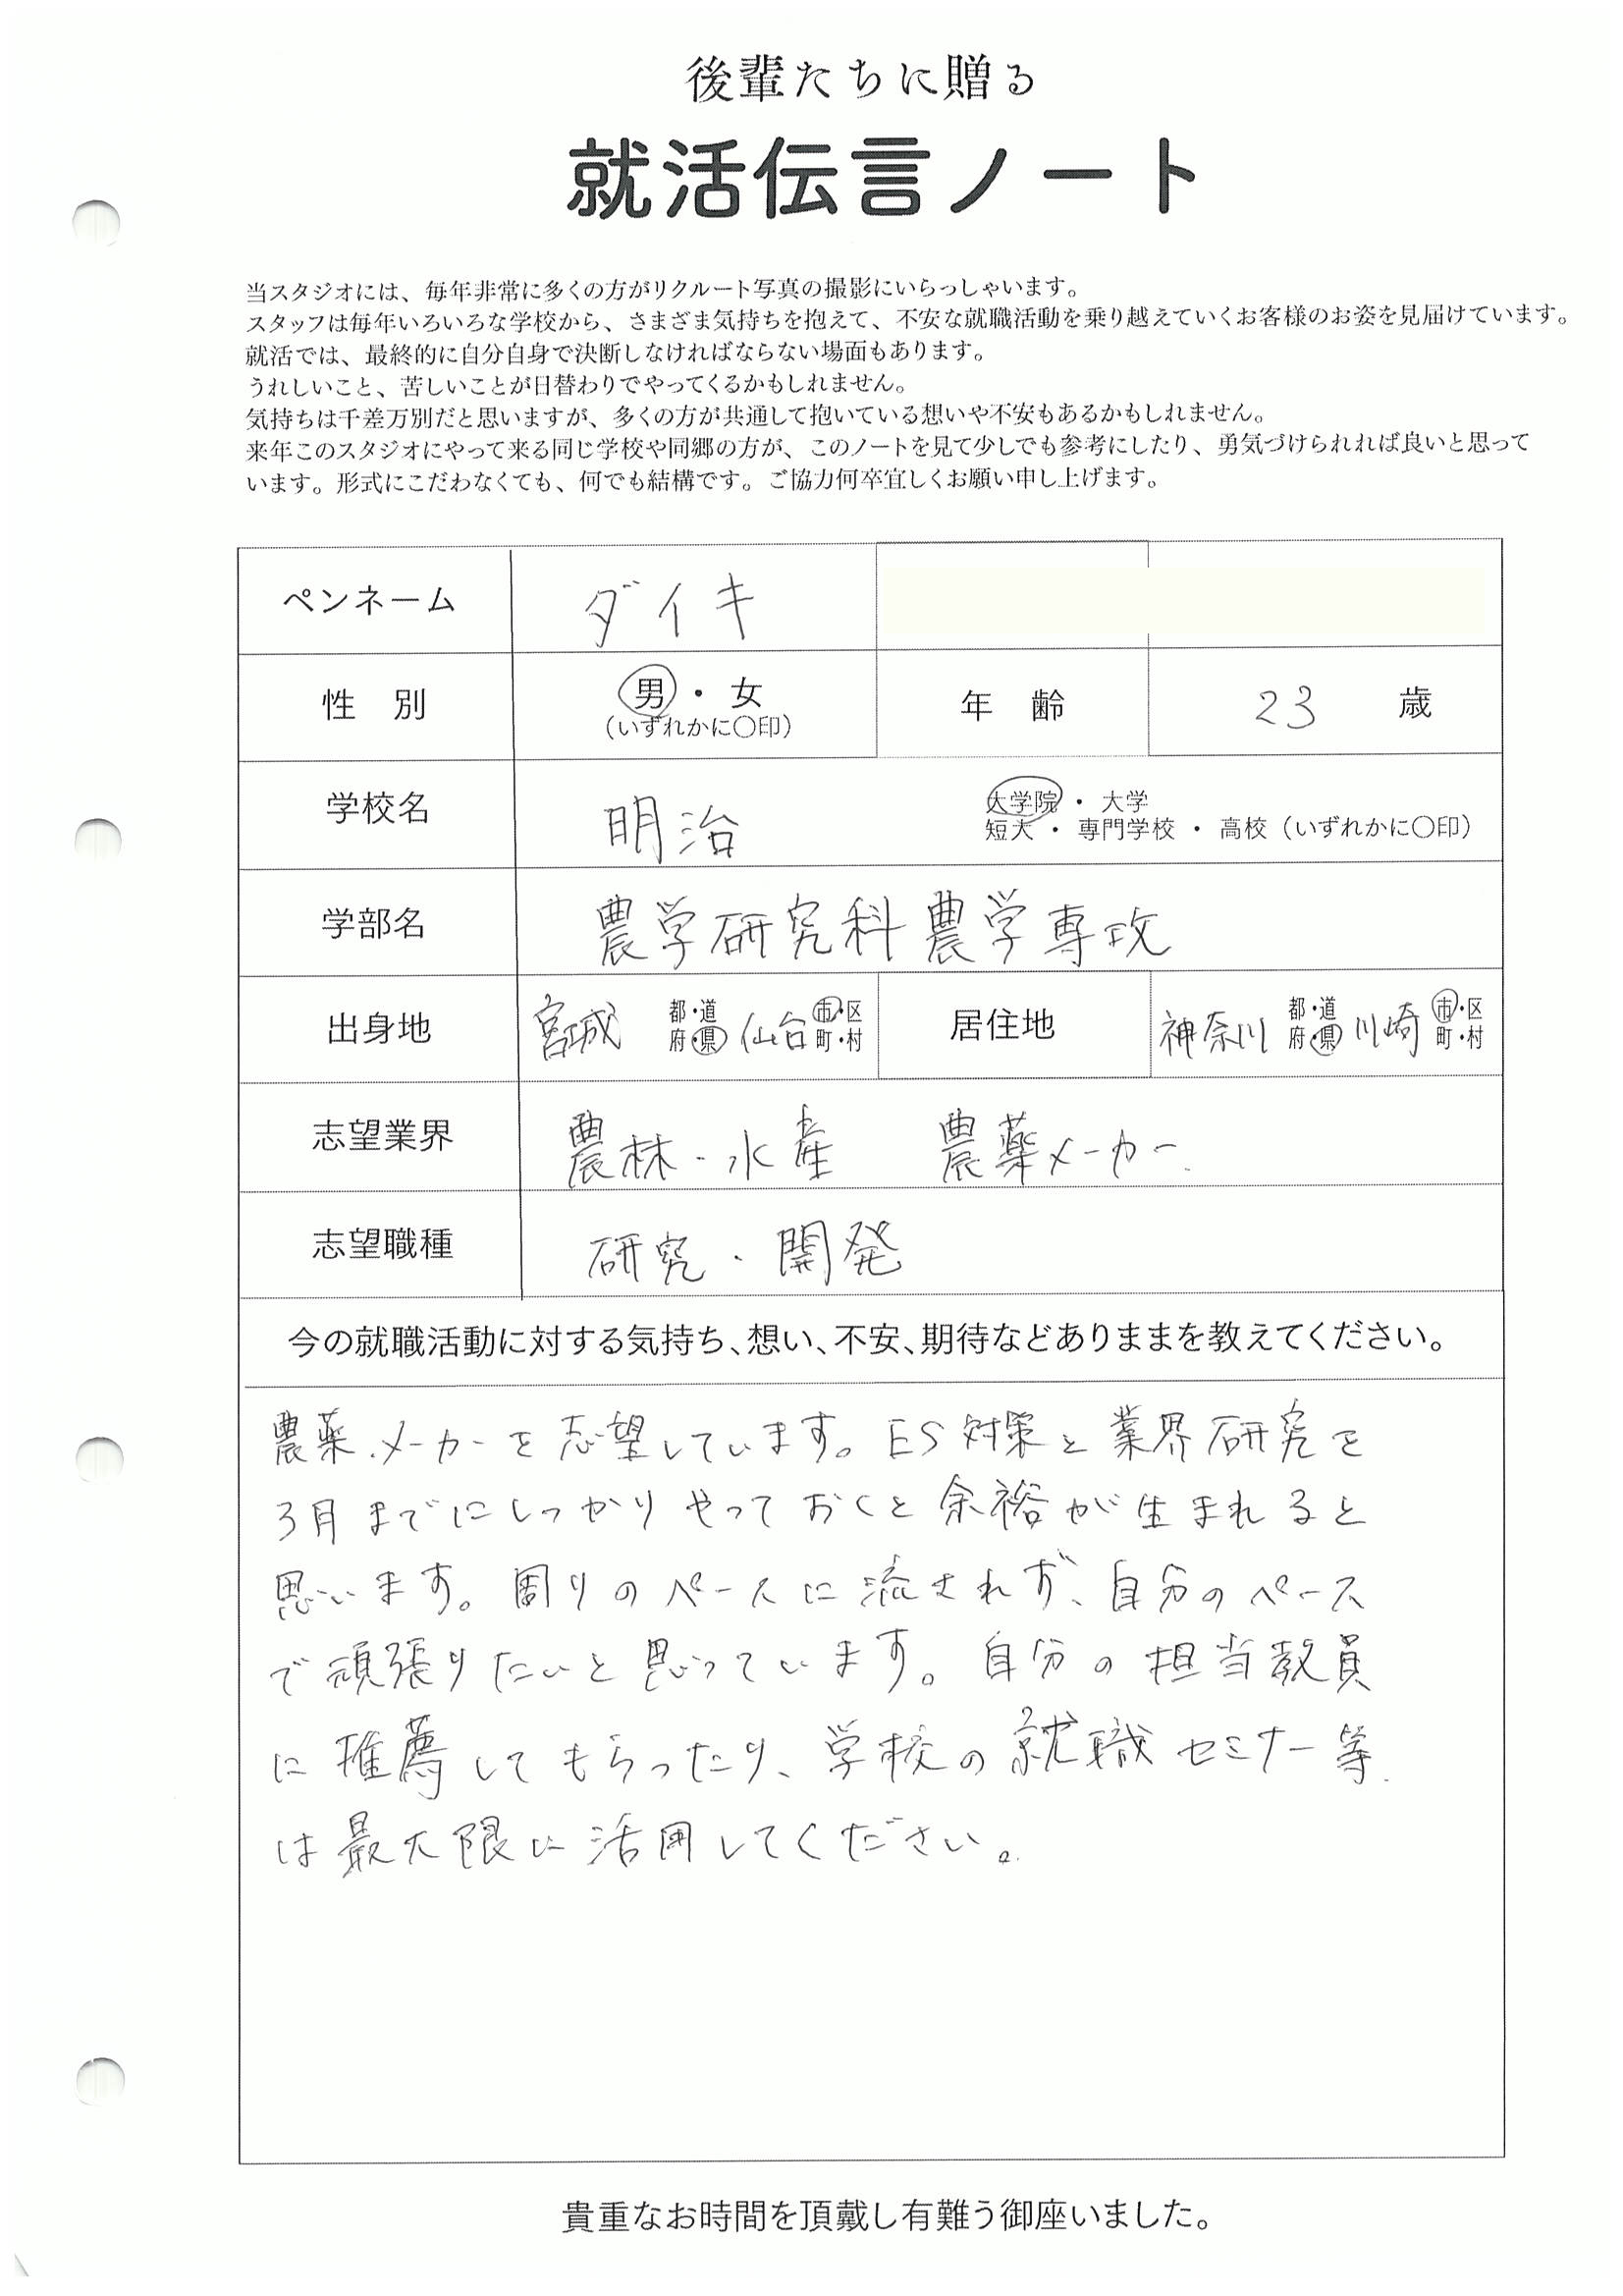 後輩たちに贈る
就活伝言ノート
当スタジオには、毎年非常に多くの方がリクルート写真の撮影にいらっしゃいます。
スタッフは毎年いろいろな学校から、さまざま気持ちを抱えて、不安な就職活動を乗り越えていくお客様のお姿を見届けています。
就活では、最終的に自分自身で決断しなければならない場面もあります。
うれしいこと、苦しいことが日替わりでやってくるかもしれません。
気持ちは千差万別だと思いますが、多くの方が共通して抱いている想いや不安もあるかもしれません。
来年このスタジオにやって来る同じ学校や同郷の方が、このノートを見て少しでも参考にしたり、勇気づけられれば良いと思って
います。形式にこだわなくても、何でも結構です。ご協力何卒宜しくお願い申し上げます。
ペンネーム ダイキ
性 別 男・女 (いずれかに〇印) 年 齢 23 歳
学校名 明治 大学院 ・ 大学
短大 ・ 専門学校 ・ 高校 (いずれかに〇印)
学部名 農学研究科農学専攻
出身地 宮城 都・道府・県 仙台 市・区町・村 居住地 神奈川 都・道府・県 川崎 市・区町・村
志望業界 農林・水産 農薬メーカー
志望職種 研究・開発
今の就職活動に対する気持ち、想い、不安、期待などありままを教えてください。
農薬メーカーを志望しています。ES対策と業界研究を
3月までにしっかりやっておくと余裕が生まれると
思います。周りのペースに流されず、自分のペース
で頑張りたいと思っています。自分の担当教員
に推薦してもらったり、学校の就職セミナー等
は最大限に活用してください。
貴重なお時間を頂戴し有難う御座いました。